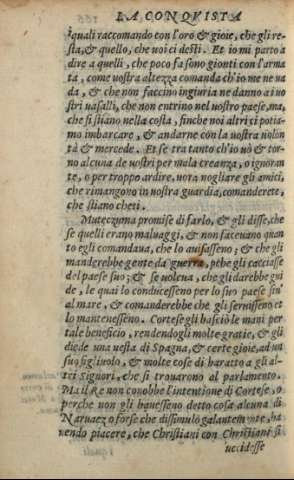 LA CONQVISTA
iquali raccomando con l'oro & gioie, che gli re-
sta, & quello, che uoi ci desti. Et io mi parto à
dire a quelli, che poco fa sono gionti con l'arma
ta, come uostra altezza comanda ch'io me ne ua
da, & che non faccino ingiuria ne danno a i uo
stri uasalli, che non entrino nel uostro paese, ma,
che si stiano nella costa, finche noi altri ci potia-
mo imbarcare, & andarne con la uostra uolon
tà & mercede. Et se tra tanto ch'io uò & tor-
no alcuna de uostri per mala creanza, o ignoran
te, o per troppo ardire, uorà nogliare gli amici,
che rimangono in uostra guardia, comanderete,
che stiano cheti.
Muteczuma promise di farlo, & gli disse, che
se quelli erano maluaggi, & non faceuano quan
to egli comandaua, che lo auisasseno; & che gli
manderebbe gente da guerra, pche gli cacciasse
del paese suo; & se uoleua, che gli darebbe gui
de, le quai lo conducesseno per lo suo paese sin'
al mare, & comanderebbe che gli seruisseno et
lo mantenesseno. Cortese gli basciò le mani per
tale beneficio, rendendogli molte gratie, & gli
diede una uesta di Spagna, & certe gioie, ad un
suo figliuolo, & molte cose di baratto a gli al-
tri Signori, che si trouarono al parlamento.
Ma il Re non conobbe l'intentione di Cortese, o
perche non gli hauesseno detto cosa alcuna di
Naruaez o forse che dissimulò galantemente, ha
uendo piacere, che Christiani con Christiani si
uccidesse